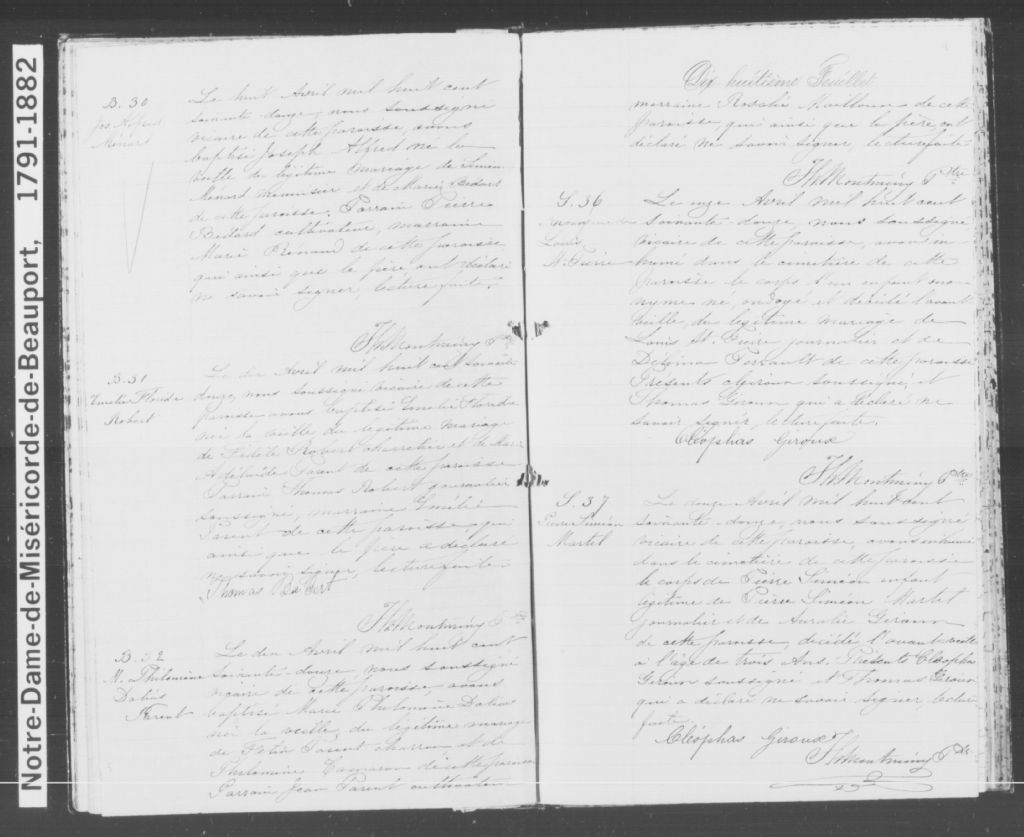 Notre-Dame-de-Miséricorde-de-Beauport, 1791-1882
B. 30
Jos. Alfred
Ménard
Le huit Avril mil huit cent
soixante-douze, nous soussigné
vicaire de cette paroisse, avons
baptisé Joseph Alfred né la
veille du légitime mariage de Siméon
Ménard menuisier et de Marie Bédard
de cette paroisse. Parrain Pierre
Bédard cultivateur, marraine
Marie de cette paroisse
qui ainsi que le père, ont déclaré
ne savoir signer, lecture faite.
Th Montminy Ptre
B. 31
Emélie Florida
Robert
Le dix Avril mil huit cent soixante
douze, nous soussigné vicaire de cette
paroisse avons baptisé Emélie Florida
née la veille du légitime mariage
de Robert charretier et de Marie
Adélaïde Parent de cette paroisse
Parrain Thomas Robert journalier
soussigné, marraine Emélie
Parent de cette paroisse qui
ainsi que le père a déclaré
ne savoir signer, lecture faite
Thomas Robert
Th Montminy Ptre
B. 32
M. Philomène
Dalvis
Parent
Le dix Avril mil huit cent
soixante-douze, nous soussigné
vicaire de cette paroisse, avons
baptisé Marie Philomène
née la veille, du légitime mariage
de Parent charron et de
Philomène de cette paroisse
Parrain Jean Parent cultivateur
Dix huitième Feuillet
marraine Rosalie Mailloux de cette
paroisse qui ainsi que le père, ont
déclaré ne savoir signer, lecture faite
Th Montminy Ptre
S. 36
Anonyme de
Louis
St. Pierre
Le onze Avril mil huit cent
soixante douze, nous soussigné
vicaire de cette paroisse, avons in-
humé dans le cimetière de cette
paroisse le corps d'un enfant ano-
nyme né, ondoyé et décédé l'avant
veille, du légitime mariage de
Louis St. Pierre journalier et de
Delphina Perrault de cette paroisse
Présents Giroux soussigné, et
Thomas Giroux qui a déclaré ne
savoir signer, lecture faite.
Cléophas Giroux
Th Montminy Ptre
S. 37
Pierre Siméon
Martel
Le douze Avril mil huit cent
soixante-douze, nous soussigné
vicaire de cette paroisse, avons inhumé
dans le cimetière de cette paroisse
le corps de Pierre Siméon enfant
légitime de Pierre Siméon Martel
journalier et de Aurélie Giroux
de cette paroisse, décédé l'avant veille
à l'âge de trois Ans. Présents Cléophas
Giroux soussigné et Thomas Giroux
qui a déclaré ne savoir signer, lecture
faite.
Cléophas Giroux
Th Montminy Ptre